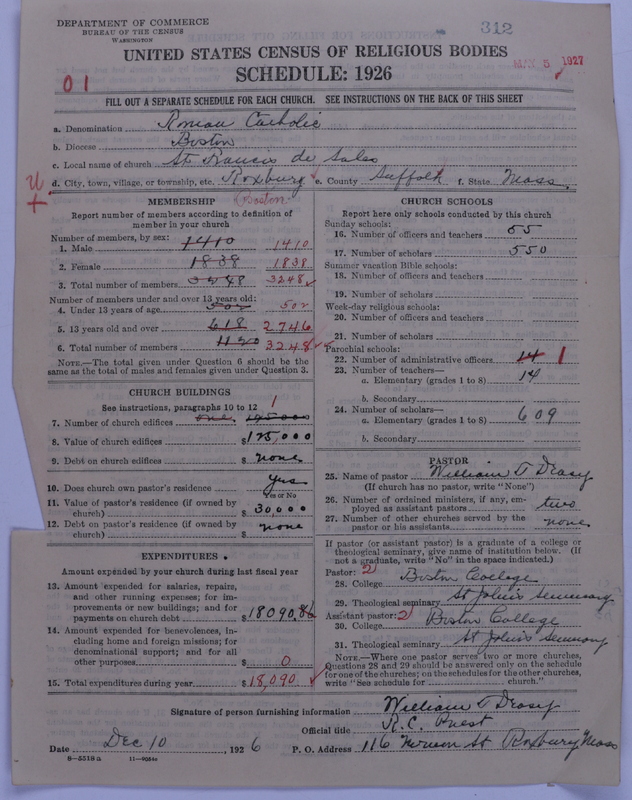 DEPARTMENT OF COMMERCE
BUREAU OF THE CENSUS
WASHINGTON
312
UNITED STATES CENSUS OF RELIGIOUS BODIES
SCHEDULE: 1926
MAY 5 1927
01
FILL OUT A SEPARATE SCHEDULE FOR EACH CHURCH. SEE INSTRUCTIONS ON THE BACK OF THIS SHEET
a. Denomination Roman Catholic
b. Diocese Boston
c. Local name of church St Francis de Sales
d. City, town, village, or township, etc. Roxbury e. County Suffolk f. State Mass.
Boston
MEMBERSHIP
Report number of members according to definition of
member in your church
Number of members, by sex:
1. Male 1410 1410
2. Female 1838 1838
3. Total number of members 3248 3248
Number of members under and over 13 years old:
4. Under 13 years of age 502 502
5. 13 years old and over 618 2746
6. Total number of members 1120 3248
NOTE.—The total given under Question 6 should be the
same as the total of males and females given under Question 3.
CHURCH BUILDINGS
See instructions, paragraphs 10 to 12
7. Number of church edifices one. 1
8. Value of church edifices $ 125,000
9. Debt on church edifices $ none
10. Does church own pastor's residence yes
Yes or No
11. Value of pastor's residence (if owned by
church) $ 30,000
12. Debt on pastor's residence (if owned by
church) $ none
EXPENDITURES
Amount expended by your church during last fiscal year
13. Amount expended for salaries, repairs,
and other running expenses; for im-
provements or new buildings; and for
payments on church debt $ 18090.86
14. Amount expended for benevolences, in-
cluding home and foreign missions; for
denominational support; and for all
other purposes $ 0
15. Total expenditures during year $ 18,090
CHURCH SCHOOLS
Report here only schools conducted by this church
Sunday schools:
16. Number of officers and teachers 55
17. Number of scholars 550
Summer vacation Bible schools:
18. Number of officers and teachers
19. Number of scholars
Week-day religious schools:
20. Number of officers and teachers
21. Number of scholars
Parochial schools:
22. Number of administrative officers 14 1
23. Number of teachers—
a. Elementary (grades 1 to 8) 14
b. Secondary
24. Number of scholars—
a. Elementary (grades 1 to 8) 609
b. Secondary
PASTOR
25. Name of pastor William T Deasy
(If church has no pastor, write "None")
26. Number of ordained ministers, if any, em-
ployed as assistant pastors two
27. Number of other churches served by the
pastor or his assistants none
If pastor (or assistant pastor) is a graduate of a college or
theological seminary, give name of institution below. (If
not a graduate, write "No" in the space indicated.)
Pastor: 2
28. College Boston College
29. Theological seminary St John's Seminary
Assistant pastor: 2
30. College Boston College
31. Theological seminary St John's Seminary
NOTE.—Where one pastor serves two or more churches,
Questions 28 and 29 should be answered only on the schedule
for one of the churches; on the schedules for the other churches,
write "See schedule for ........ church."
Signature of person furnishing information William T Deasy
Official title R.C. Priest
Date Dec 10, 1926 P. O. Address 116 Vernon St Roxbury Mass
8-5518a 11-9034